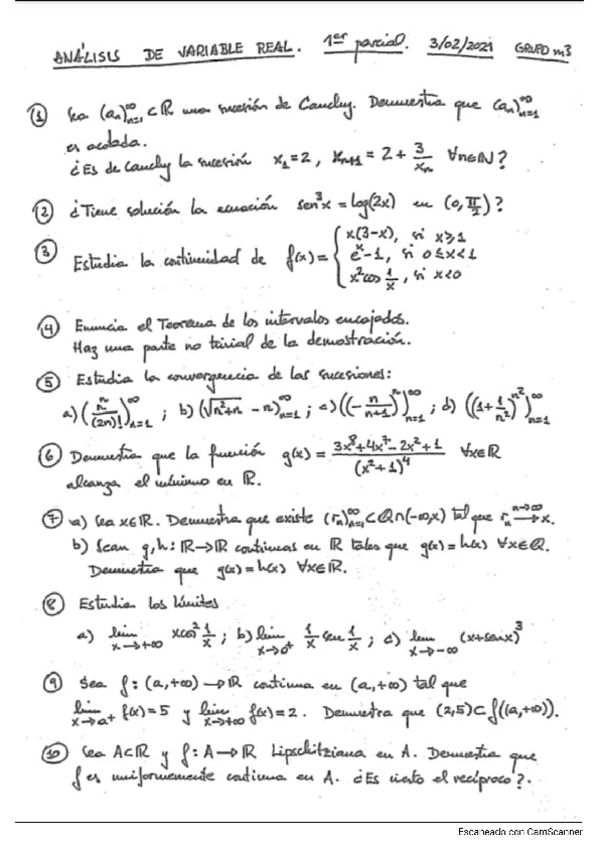 ANÁLISIS DE VARIABLE REAL. 1er parcial. 3/02/2021 GRUPO m3
① Sea (aₙ)ₙ₌₁^∞ ⊂ ℝ una sucesión de Cauchy. Demuestra que (aₙ)ₙ₌₁^∞
es acotada.
¿Es de Cauchy la sucesión x₁=2, xₙ₊₁ = 2 + 3/xₙ ∀n∈ℕ?
② ¿Tiene solución la ecuación sen³x = log(2x) en (0, π/2)?
③ Estudia la continuidad de f(x) = { x(3-x), si x≥1
eˣ-1, si 0≤x<1
x²cos 1/x, si x<0
④ Enuncia el Teorema de los intervalos encajados.
Haz una parte no trivial de la demostración.
⑤ Estudia la convergencia de las sucesiones:
a) (nⁿ/(2n)!)ₙ₌₁^∞ ; b) (√(n²+n) - n)ₙ₌₁^∞ ; c) ((-n/(n+1))ⁿ)ₙ₌₁^∞ ; d) ((1+1/n²)^(n²))ₙ₌₁^∞
⑥ Demuestra que la función g(x) = (3x⁸+4x⁷-2x²+1)/(x²+1)⁴ ∀x∈ℝ
alcanza el mínimo en ℝ.
⑦ a) Sea x∈ℝ. Demuestra que existe (rₙ)ₙ₌₁^∞ ⊂ ℚ∩(-∞,x) tal que rₙ →(n→∞) x.
b) Sean g,h: ℝ→ℝ continuas en ℝ tales que g(x)=h(x) ∀x∈ℚ.
Demuestra que g(x)=h(x) ∀x∈ℝ.
⑧ Estudia los límites
a) lim x→+∞ xcos² 1/x ; b) lim x→0⁺ 1/x sen 1/x ; c) lim x→-∞ (x+senx)³
⑨ Sea f: (a,+∞) → ℝ continua en (a,+∞) tal que
lim x→a⁺ f(x)=5 y lim x→+∞ f(x)=2. Demuestra que (2,5)⊂ f((a,+∞)).
⑩ Sea A⊂ℝ y f: A→ℝ Lipschitziana en A. Demuestra que
f es uniformemente continua en A. ¿Es cierto el recíproco?.
Escaneado con CamScanner